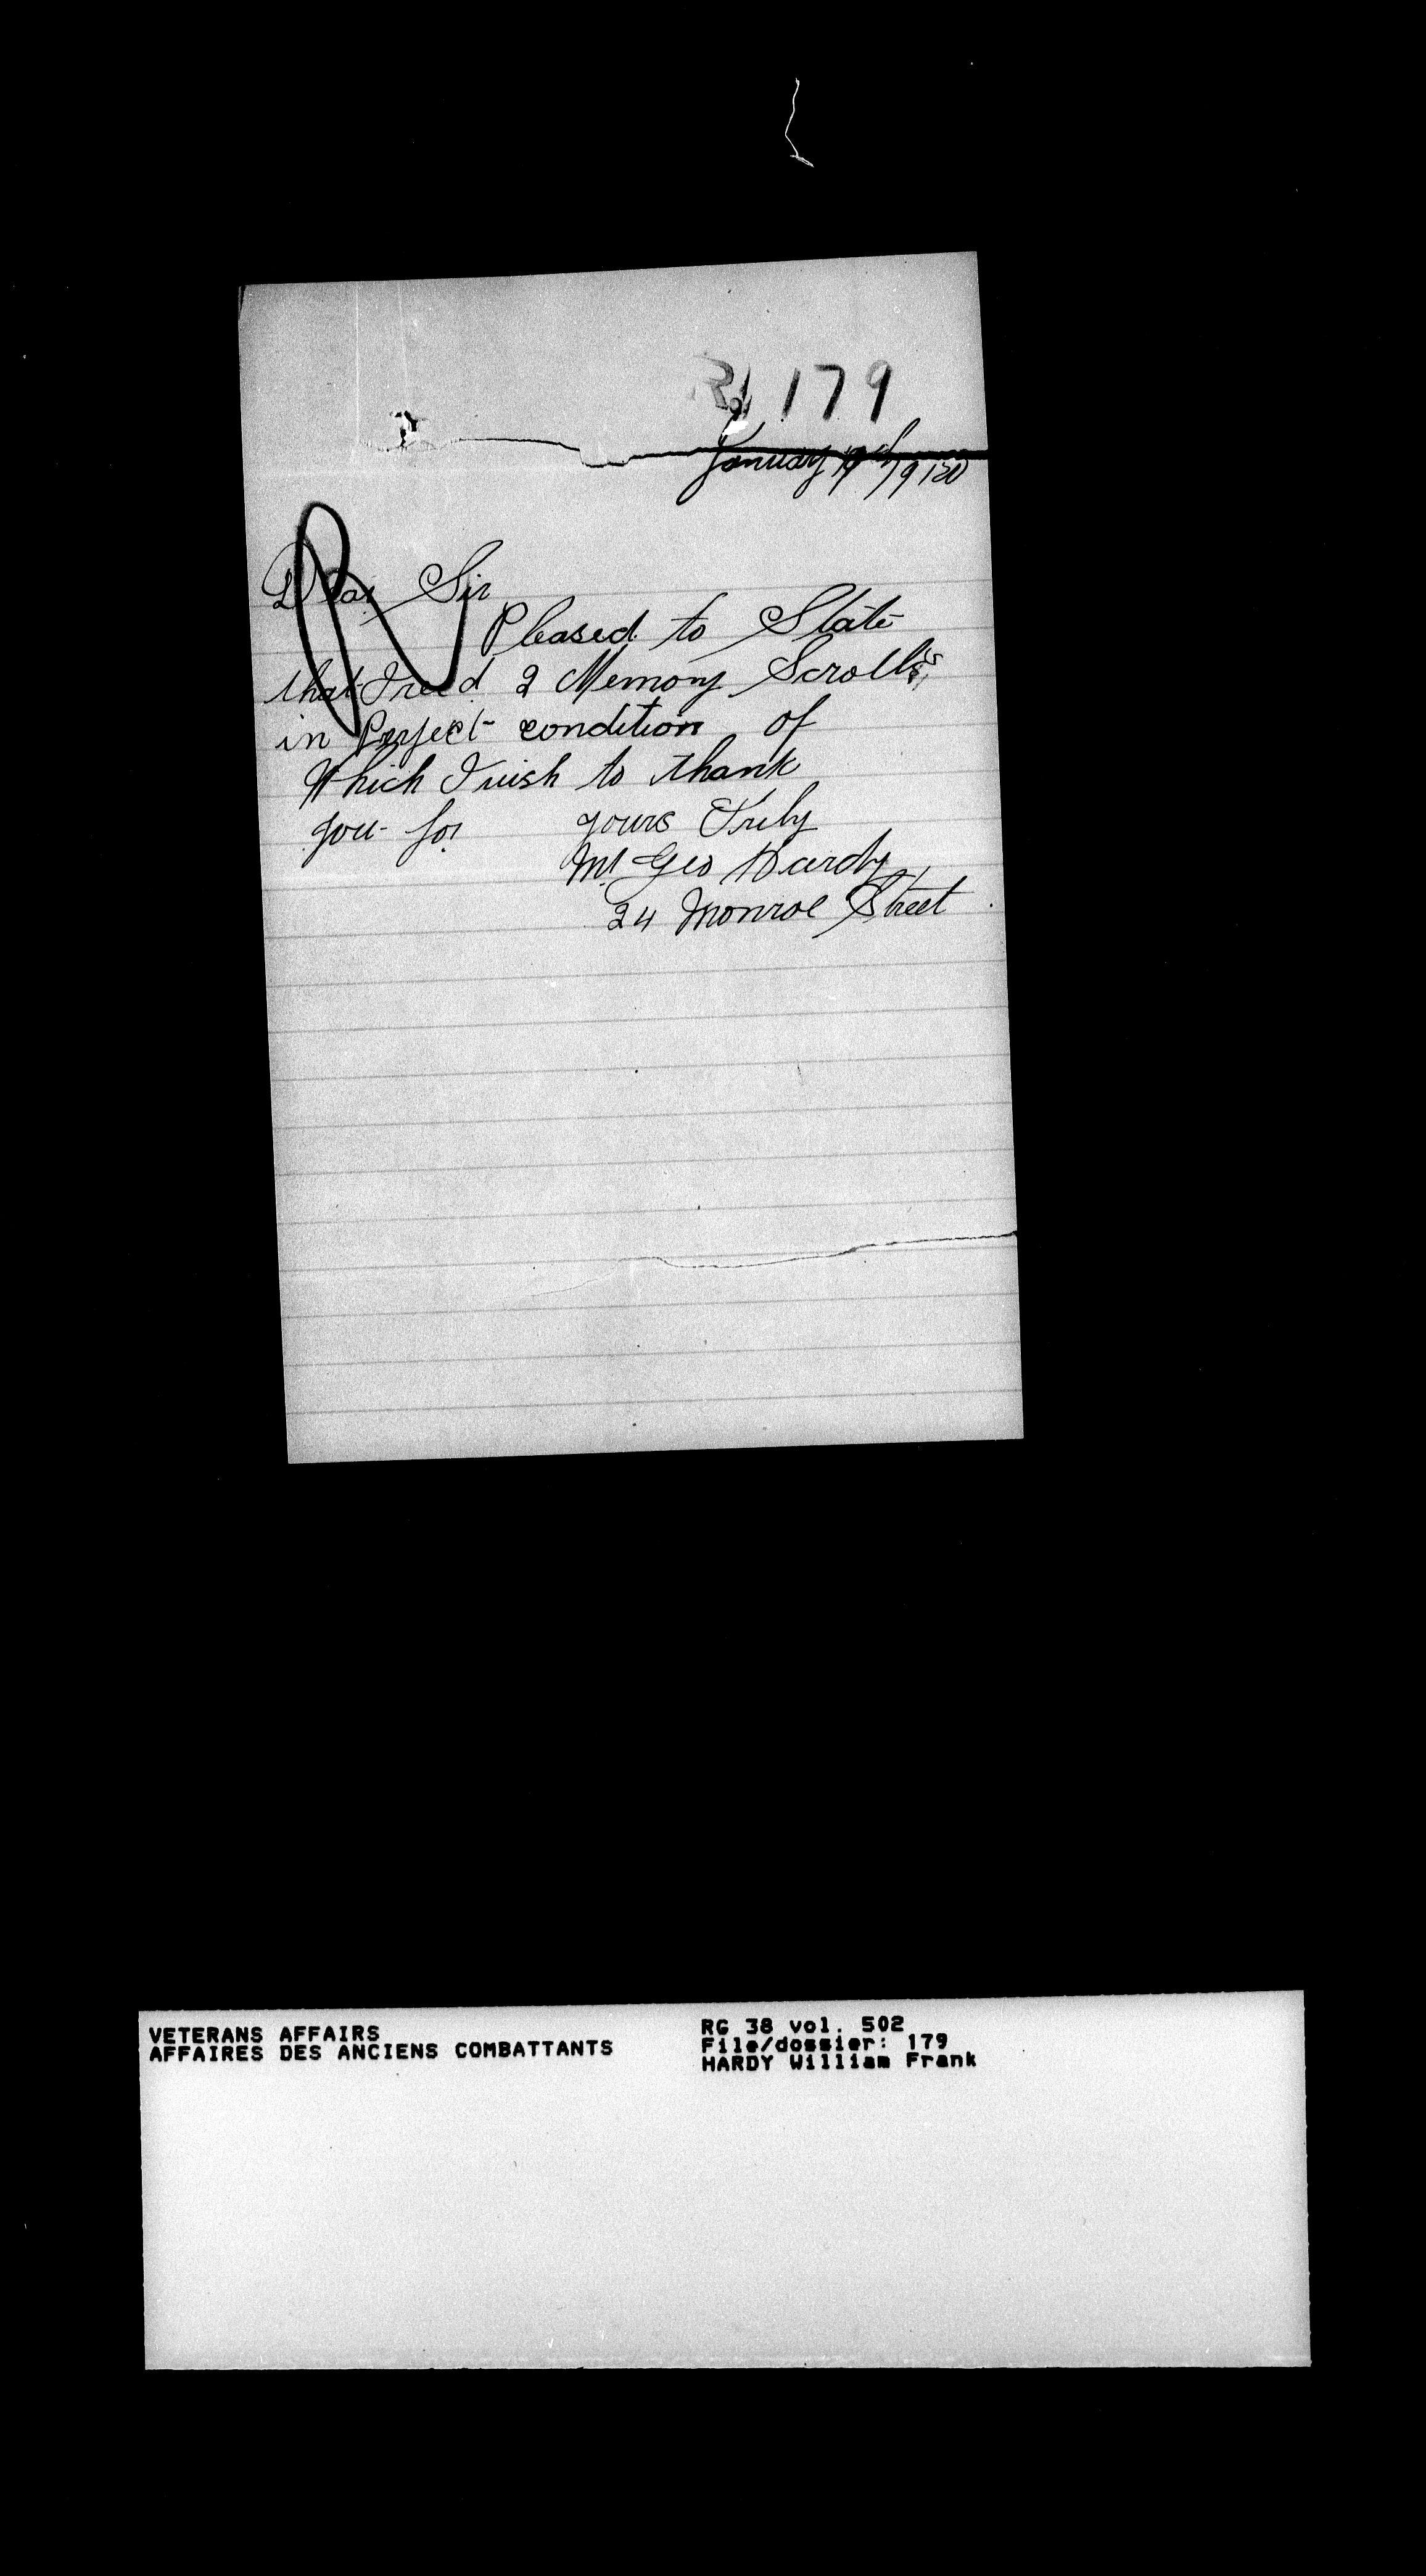 R 179
January 19th 1920
Dear Sir
Pleased to State
that I recd 2 Memory Scrolls
in Perfect condition of
Which I wish to thank
you for yours Truly
Mr Geo Hardy
24 Monroe Street
VETERANS AFFAIRS
AFFAIRES DES ANCIENS COMBATTANTS
RG 38 vol. 502
File/dossier: 179
HARDY William Frank